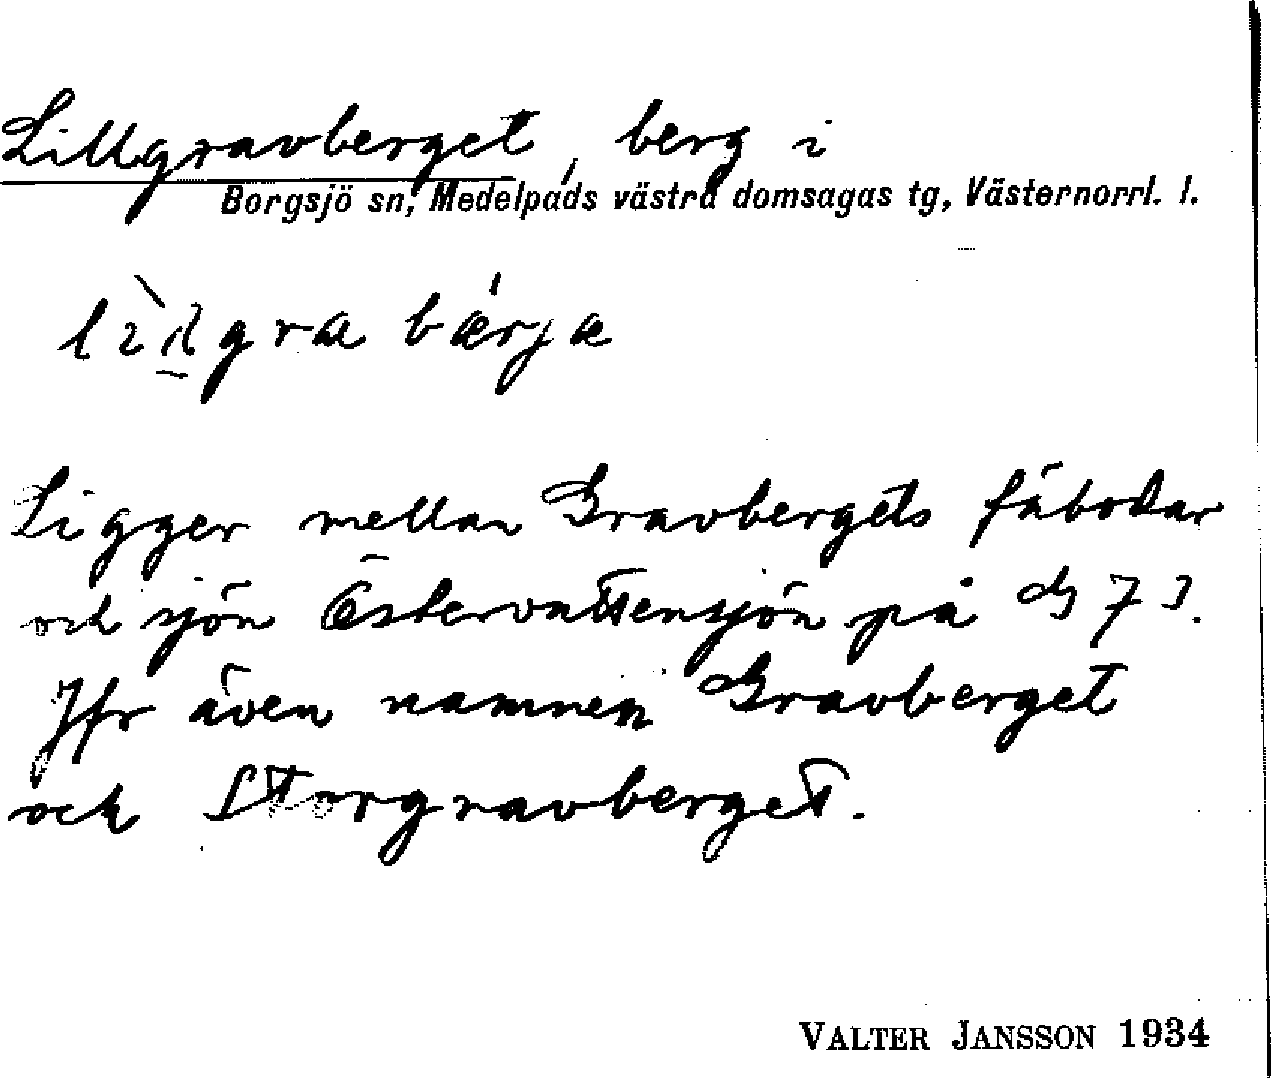 Lillgravberget, berg i
Borgsjö sn, Medelpads västra domsagas tg, Västernorrl. l.
gra bærjæ
Ligger mellan Gravbergets fäbodar
och sjön Östervattensjön på
Jfr även namnen Gravberget
och Storgravberget.
VALTER JANSSON 1934